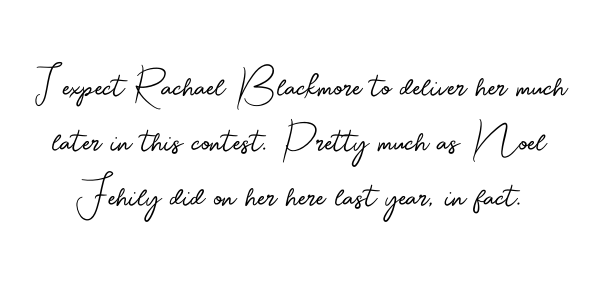 I expect Rachael Blackmore to deliver her much
later in this contest. Pretty much as Noel
Fehily did on her here last year, in fact.